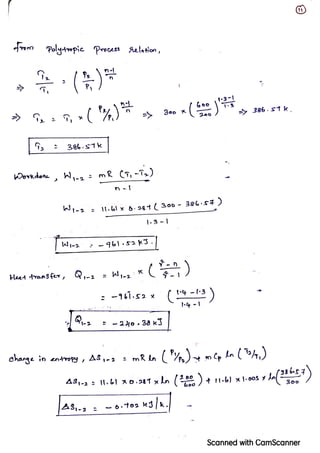 11
from Polytropic Process Relation,
⇒ T₂/T₁ = (P₂/P₁)^(n-1/n)
⇒ T₂ = T₁ × (P₂/P₁)^(n-1/n) ⇒ 300 × (600/200)^(1.3-1/1.3) ⇒ 386.57 K.
T₂ = 386.57 K
Workdone, W₁₋₂ = mR (T₁ - T₂) / n-1
W₁₋₂ = 11.61 × 0.287 (300 - 386.57) / 1.3-1
W₁₋₂ = -961.52 kJ.
Heat transfer, Q₁₋₂ = W₁₋₂ × (γ-n / γ-1)
= -961.52 × (1.4-1.3 / 1.4-1)
Q₁₋₂ = -240.38 kJ
change in entropy, ΔS₁₋₂ = mR ln (P₁/P₂) + m Cp ln (T₂/T₁)
ΔS₁₋₂ = 11.61 × 0.287 × ln (200/600) + 11.61 × 1.005 × ln (386.57/300)
ΔS₁₋₂ = -0.702 kJ/k.
Scanned with CamScanner